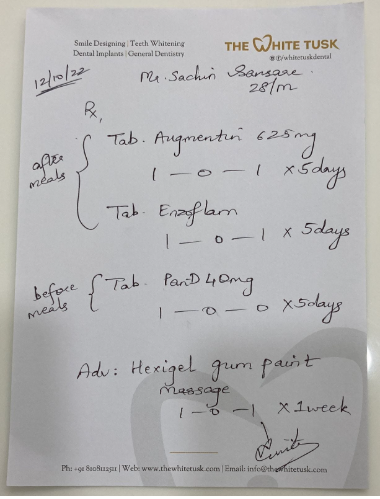 Smile Designing | Teeth Whitening
Dental Implants | General Dentistry
THE WHITE TUSK
/whitetuskdental
12/10/22
Mr. Sachin Bansare.
28/m
Rx,
after meals
Tab. Augmentin 625mg
1 - 0 - 1 x 5days
Tab. Enzoflam
1 - 0 - 1 x 5days
before meals
Tab. PanD 40mg
1 - 0 - 0 x 5days
Adv: Hexigel gum paint
massage
1 - 0 - 1 x 1week
Ph: +91 8108112511 | Web: www.thewhitetusk.com | Email: info@thewhitetusk.com